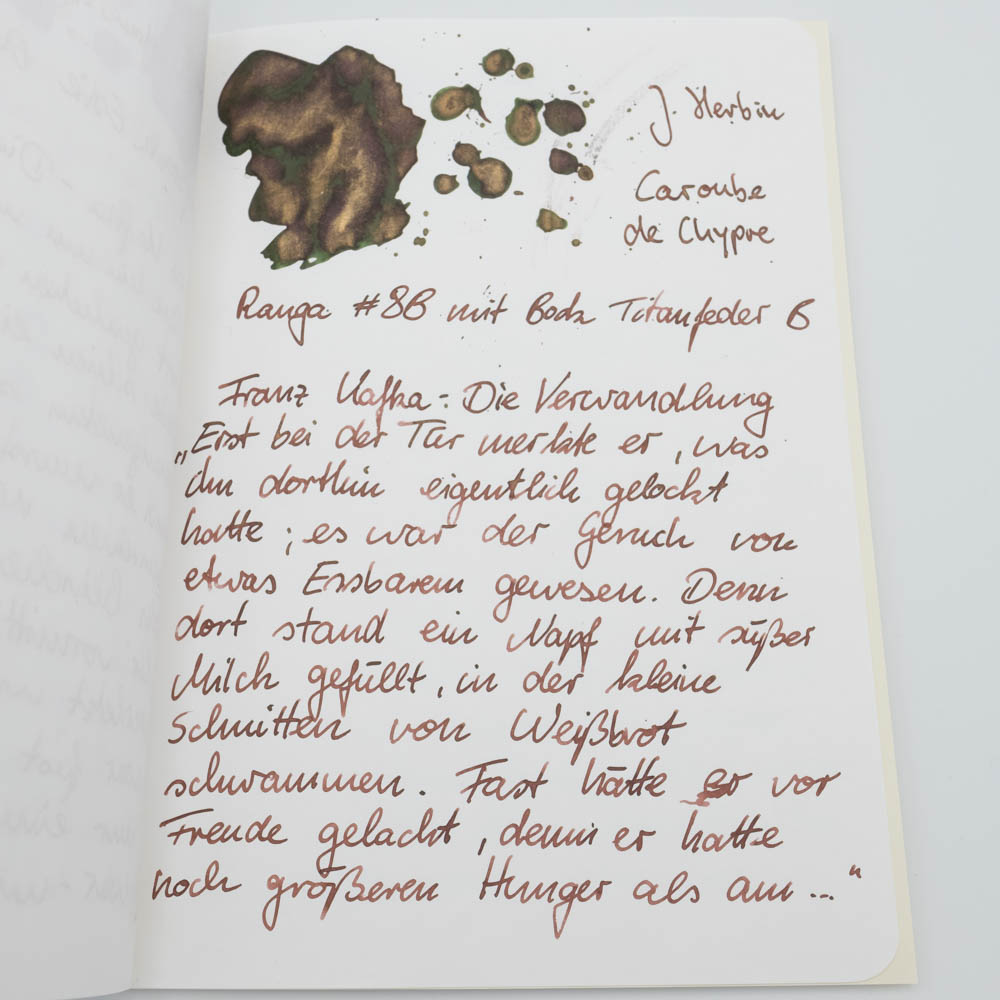 J. Herbin
Caroube
de Chypre
Ranga #8B mit Bock Titanfeder B
Franz Kafka: Die Verwandlung
„Erst bei der Tür merkte er, was
ihn dorthin eigentlich gelockt
hatte; es war der Geruch von
etwas Essbarem gewesen. Denn
dort stand ein Napf mit süßer
Milch gefüllt, in der kleine
Schnitten von Weißbrot
schwammen. Fast hätte er vor
Freude gelacht, denn er hatte
noch größeren Hunger als am ..."